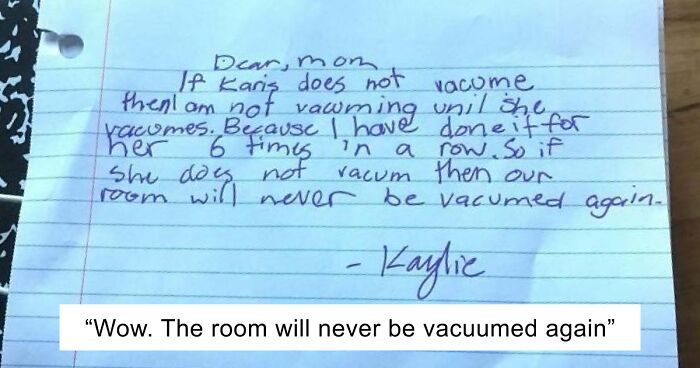 Dear, mom
If Karis does not vacume
then I am not vacuming unil she
vacumes. Because I have done it for
her 6 times in a row. So if
she does not vacum then our
room will never be vacumed again.
- Kaylie
“Wow. The room will never be vacuumed again”